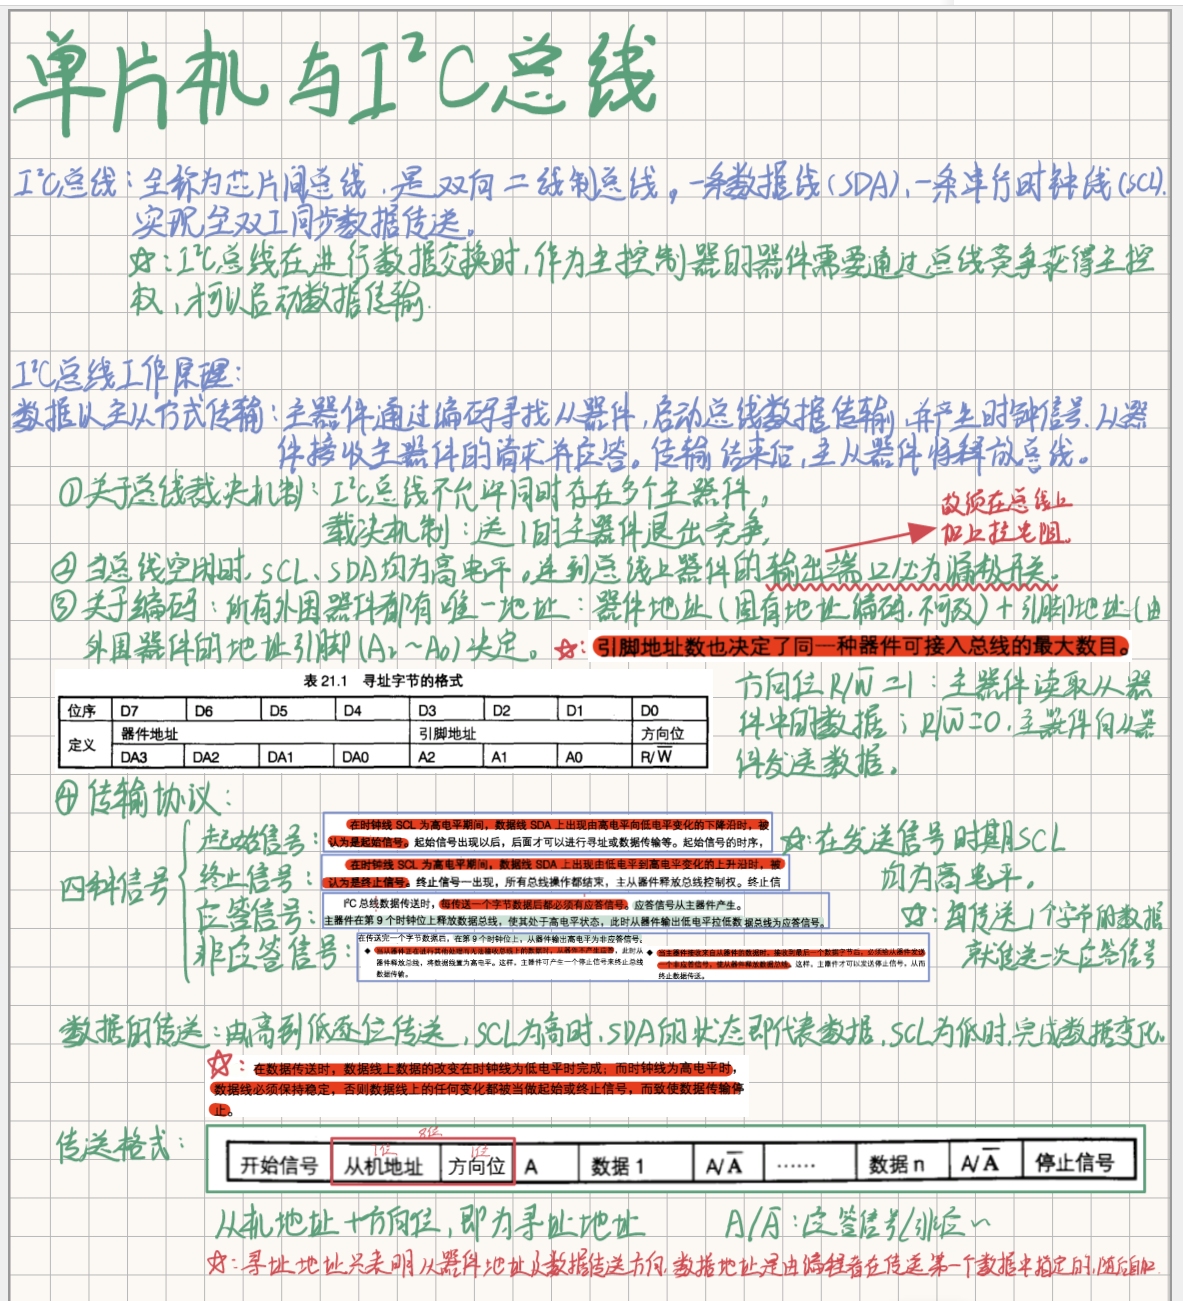 单片机与I²C总线
I²C总线：全称为芯片间总线，是双向二线制总线，一条数据线(SDA)，一条串行时钟线(SCL)，
实现全双工同步数据传送。
☆：I²C总线在进行数据交换时，作为主控制器的器件需要通过总线竞争获得主控
权，才可以启动数据传输.
I²C总线工作原理：
数据以主从方式传输：主器件通过编码寻找从器件，启动总线数据传输，并产生时钟信号，从器
件接收主器件的请求并应答。传输结束后，主从器件将释放总线。
①关于总线裁决机制：I²C总线不允许同时存在多个主器件，
裁决机制：送1的主器件退出竞争，
故须在总线上
加上拉电阻。
②当总线空闲时，SCL、SDA均为高电平。连到总线上器件的输出端口必为漏极开关。
③关于编码：所有外围器件都有唯一地址：器件地址(固有地址编码，不可改)+引脚地址(由
外围器件的地址引脚(A₂~A₀)决定。☆：引脚地址数也决定了同一种器件可接入总线的最大数目。
表 21.1 寻址字节的格式
位序 D7 D6 D5 D4 D3 D2 D1 D0
定义 器件地址 引脚地址 方向位
DA3 DA2 DA1 DA0 A2 A1 A0 R/W̅
方向位R/W̅=1：主器件读取从器
件中的数据；R/W̅=0，主器件向从器
件发送数据。
④传输协议：
四种信号
起始信号：
在时钟线 SCL 为高电平期间，数据线 SDA 上出现由高电平向低电平变化的下降沿时，被
认为是起始信号。起始信号出现以后，后面才可以进行寻址或数据传输等。起始信号的时序，
终止信号：
在时钟线 SCL 为高电平期间，数据线 SDA 上出现由低电平到高电平变化的上升沿时，被
认为是终止信号。终止信号一出现，所有总线操作都结束，主从器件释放总线控制权。终止信
☆：在发送信号时期SCL
均为高电平。
应答信号：
I²C 总线数据传送时，每传送一个字节数据后都必须有应答信号。应答信号从主器件产生。
主器件在第 9 个时钟位上释放数据总线，使其处于高电平状态，此时从器件输出低电平拉低数据总线为应答信号。
☆：每传送1个字节的数据
就发送一次应答信号
非应答信号：
在传送完一个字节数据后，在第 9 个时钟位上，从器件输出高电平为非应答信号。
◆ 当从器件正在进行其他处理而无法接收总线上的数据时，从器件不产生应答，此时从
器件释放总线，将数据线置为高电平。这样，主器件可产生一个停止信号来终止总线
数据传输。
◆ 当主器件接收来自从器件的数据时，接收到最后一个数据字节后，必须给从器件发送
一个非应答信号，使从器件释放数据总线。这样，主器件才可以发送停止信号，从而
终止数据传送。
数据的传送：由高到低逐位传送，SCL为高时，SDA的状态即代表数据，SCL为低时，完成数据变化。
☆：在数据传送时，数据线上数据的改变在时钟线为低电平时完成；而时钟线为高电平时，
数据线必须保持稳定，否则数据线上的任何变化都被当做起始或终止信号，而致使数据传输停
止。
传送格式：
8位
7位 1位
开始信号 从机地址 方向位 A 数据 1 A/A̅ …… 数据 n A/A̅ 停止信号
从机地址+方向位，即为寻址地址 A/A̅：应答信号/非应~
☆：寻址地址只表明从器件地址及数据传送方向，数据地址是由编程者在传送第一个数据中指定的，随后自加.